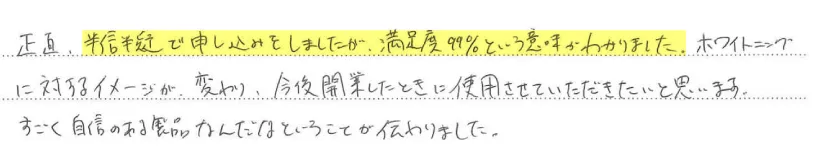 正直、半信半疑で申し込みをしましたが、満足度99%という意味がわかりました。ホワイトニング
に対するイメージが、変わり、今後開業したときに使用させていただきたいと思います。
すごく自信のある製品なんだなということが伝わりました。